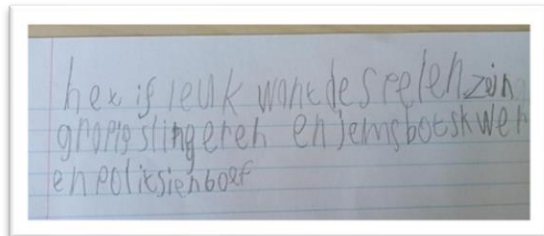 hex is leuk want de spelen zein
grapig slingeren en jemsbotskwer
en politsienboef